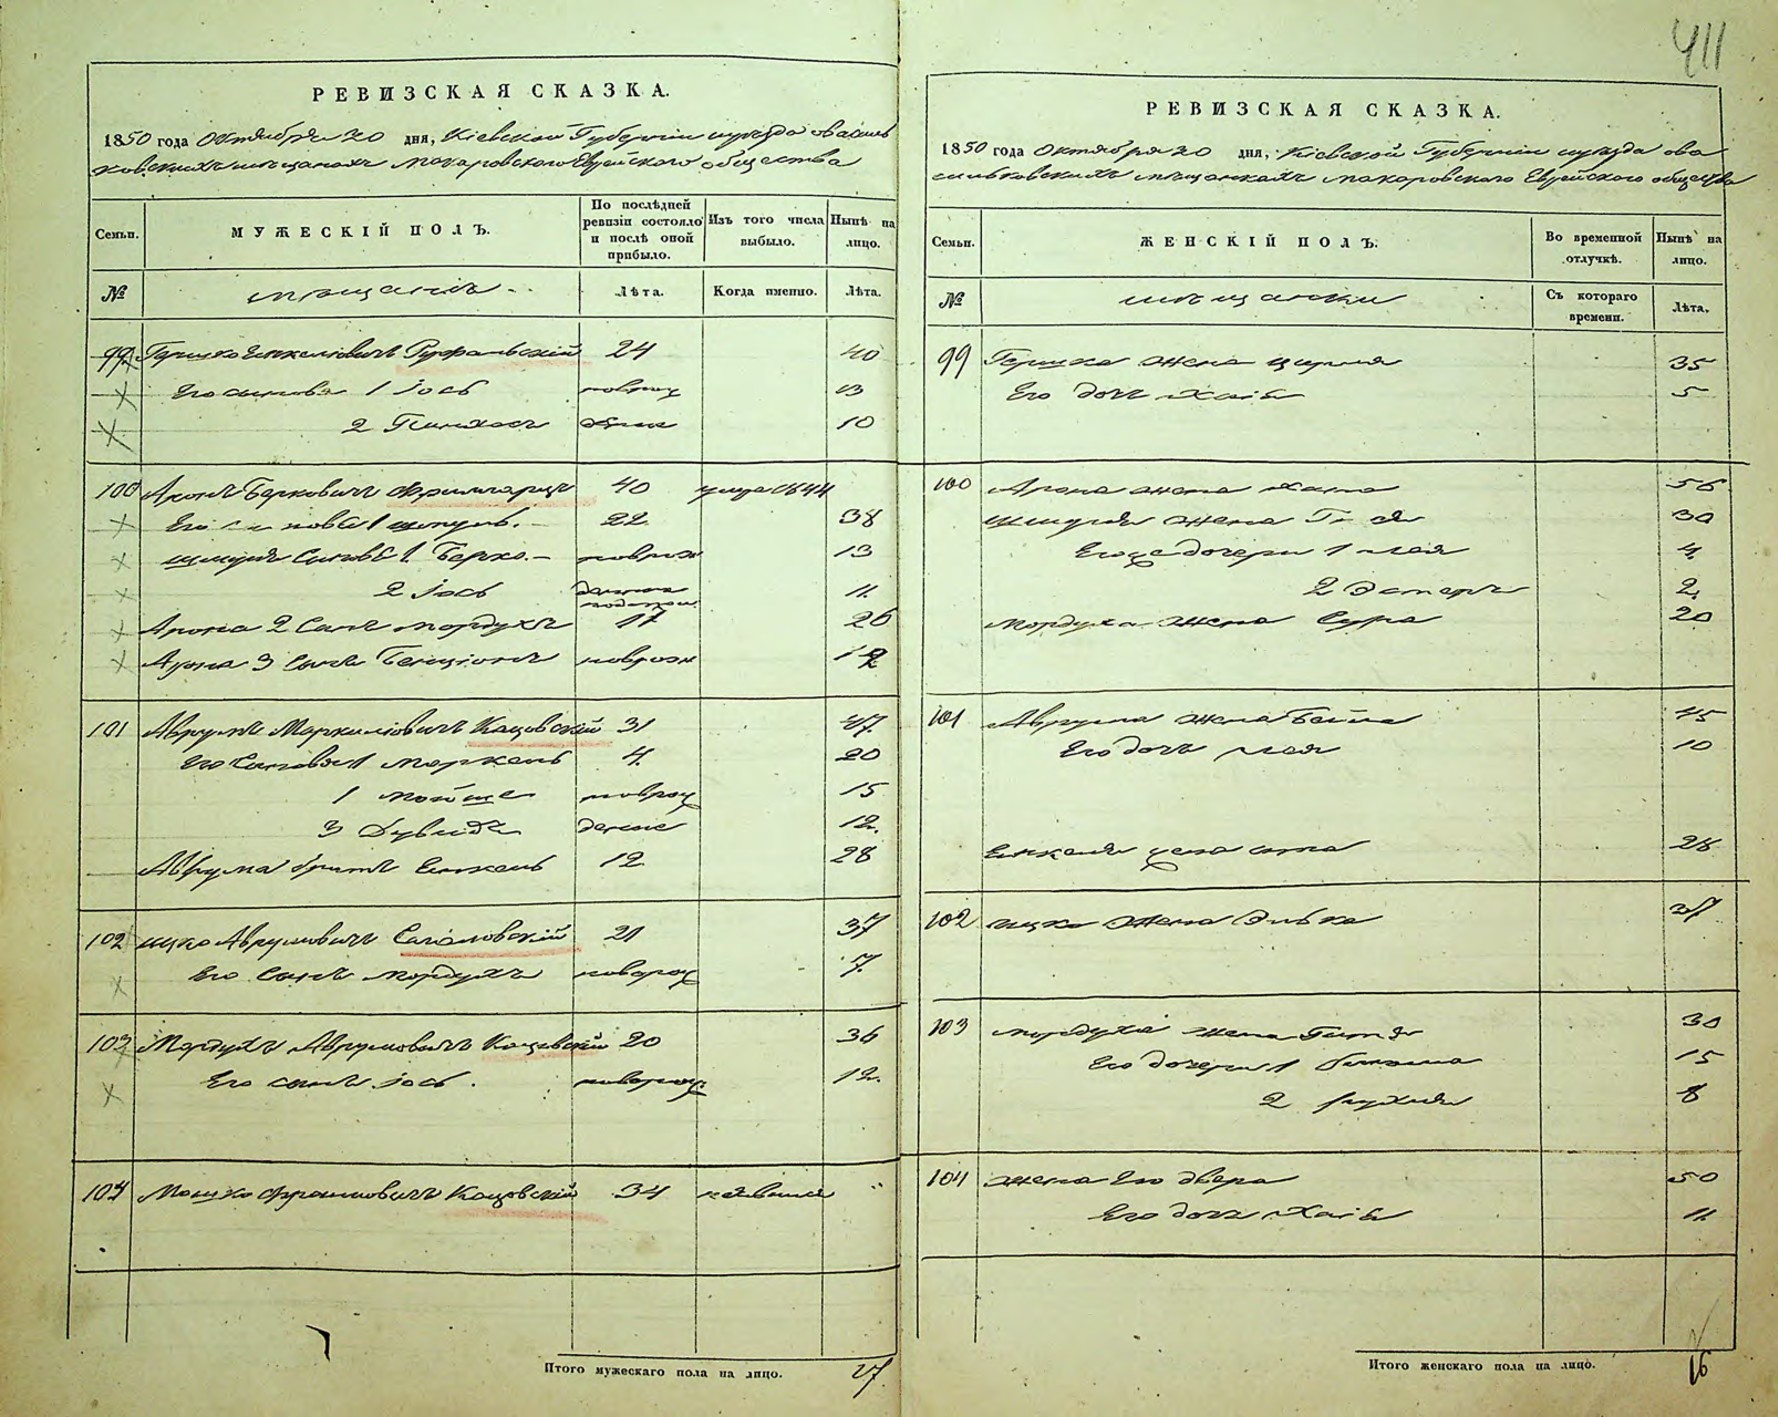 411
РЕВИЗСКАЯ СКАЗКА.
1850 года Октября 20 дня, Кіевской Губерніи уезда о василь
ковскихъ мѣщанахъ Макаровского Еврейского общества
Семьи.
МУЖЕСКІЙ ПОЛЪ.
По послѣдней ревизіи состояло и послѣ оной прибыло.
Изъ того числа выбыло.
Нынѣ на лицо.
№
мѣщанъ
Лѣта.
Когда именно.
Лѣта.
99 Гершко Янкелювичъ 24 40
Его сыновья 1 Іось новрож 13
2 Пинхосъ 10
100 Аронъ Берковичъ 40 умре 1844
Его сыновья 1 Шмуль. 22 38
Шмуля Сыновья 1 Берко. новрож 13
2 Іось 11.
Арона 2 Сынъ Мордухъ 17 26
Арона 3 Сынъ Бенціонъ новрож 12
101 Аврумъ Маркилювичъ Кацовскій 31 47.
Его Сыновья 1 Моркель 4. 20
1 Мойше новрож 15
3 Дувидъ 12.
Аврума братъ Янкель 12 28
102 Ицко Аврумовичъ 21 37
Его Сынъ Мордухъ новорож 7.
103 Мордухъ Аврумовичъ Кацовскій 20 36
Его сынъ Іось. новорож 12.
104 Мошко Фроимовичъ Кацовскій 34 "
Итого мужескаго пола на лицо. 17.
РЕВИЗСКАЯ СКАЗКА.
1850 года Октября 20 дня, Кіевской Губерніи уезда о ва
сильковскихъ мѣщанкахъ Макаровского Еврейского общества
Семьи.
ЖЕНСКІЙ ПОЛЪ.
Во временной отлучкѣ.
Нынѣ на лицо.
№
мѣщанки
Съ котораго времени.
Лѣта.
99 Гершка жена 35
Его дочь Хая 5
100 Арона жена 56
Шмуля жена 30
Его дочери 1 Лея 4
2 Эстеръ 2.
Мордуха жена Сура 20
101 Аврума жена Бейла 45
Его дочь Лея 10
Янкеля жена 28
102 Ицка жена Элька 27
103 Мордуха жена Гитля 30
Его дочери 1 15
2 Рухля 8
104 Жена Его Двера 50
Его дочь Хая 11.
Итого женскаго пола на лицо. 16